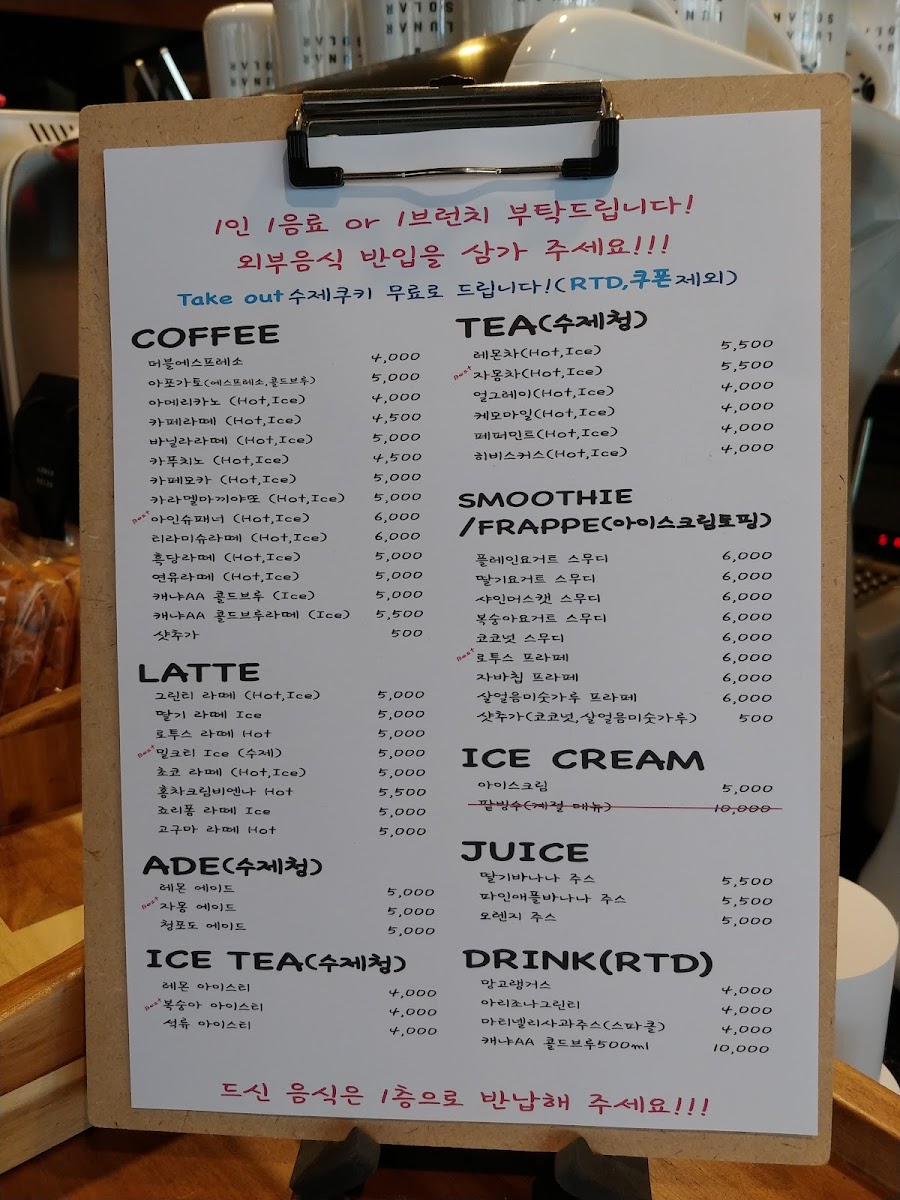 LUNAR SOLAR
1인 1음료 or 1브런치 부탁드립니다!
외부음식 반입을 삼가 주세요!!!
Take out 수제쿠키 무료로 드립니다!(RTD,쿠폰제외)
COFFEE
더블에스프레소 4,000
아포가토(에스프레소,콜드브루) 5,000
아메리카노 (Hot,Ice) 4,000
카페라떼 (Hot,Ice) 4,500
바닐라라떼 (Hot,Ice) 5,000
카푸치노 (Hot,Ice) 4,500
카페모카 (Hot,Ice) 5,000
카라멜마끼야또 (Hot,Ice) 5,000
Best 아인슈패너 (Hot,Ice) 6,000
티라미슈라떼 (Hot,Ice) 6,000
흑당라떼 (Hot,Ice) 5,000
연유라떼 (Hot,Ice) 5,000
캐냐AA 콜드브루 (Ice) 5,000
캐냐AA 콜드브루라떼 (Ice) 5,500
샷추가 500
LATTE
그린티 라떼 (Hot,Ice) 5,000
딸기 라떼 Ice 5,000
로투스 라떼 Hot 5,000
Best 밀크티 Ice (수제) 5,000
초코 라떼 (Hot,Ice) 5,000
홍차크림비엔나 Hot 5,500
죠리퐁 라떼 Ice 5,000
고구마 라떼 Hot 5,000
ADE(수제청)
레몬 에이드 5,000
Best 자몽 에이드 5,000
청포도 에이드 5,000
ICE TEA(수제청)
레몬 아이스티 4,000
Best 복숭아 아이스티 4,000
석류 아이스티 4,000
TEA(수제청)
레몬차(Hot,Ice) 5,500
Best 자몽차(Hot,Ice) 5,500
얼그레이(Hot,Ice) 4,000
케모마일(Hot,Ice) 4,000
페퍼민트(Hot,Ice) 4,000
히비스커스(Hot,Ice) 4,000
SMOOTHIE
/FRAPPE(아이스크림토핑)
플레인요거트 스무디 6,000
딸기요거트 스무디 6,000
샤인머스캣 스무디 6,000
복숭아요거트 스무디 6,000
코코넛 스무디 6,000
Best 로투스 프라페 6,000
자바칩 프라페 6,000
살얼음미숫가루 프라페 6,000
샷추가(코코넛,살얼음미숫가루) 500
ICE CREAM
아이스크림 5,000
팥빙수(계절 메뉴) 10,000
JUICE
딸기바나나 주스 5,500
파인애플바나나 주스 5,500
오렌지 주스 5,000
DRINK(RTD)
망고랭거스 4,000
아리조나그린티 4,000
마티넬리사과주스(스파클) 4,000
캐냐AA 콜드브루500ml 10,000
드신 음식은 1층으로 반납해 주세요!!!